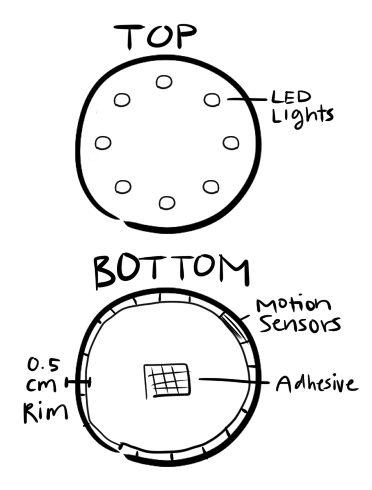 TOP
LED
Lights
BOTTOM
Motion
Sensors
0.5
cm
Rim
Adhesive